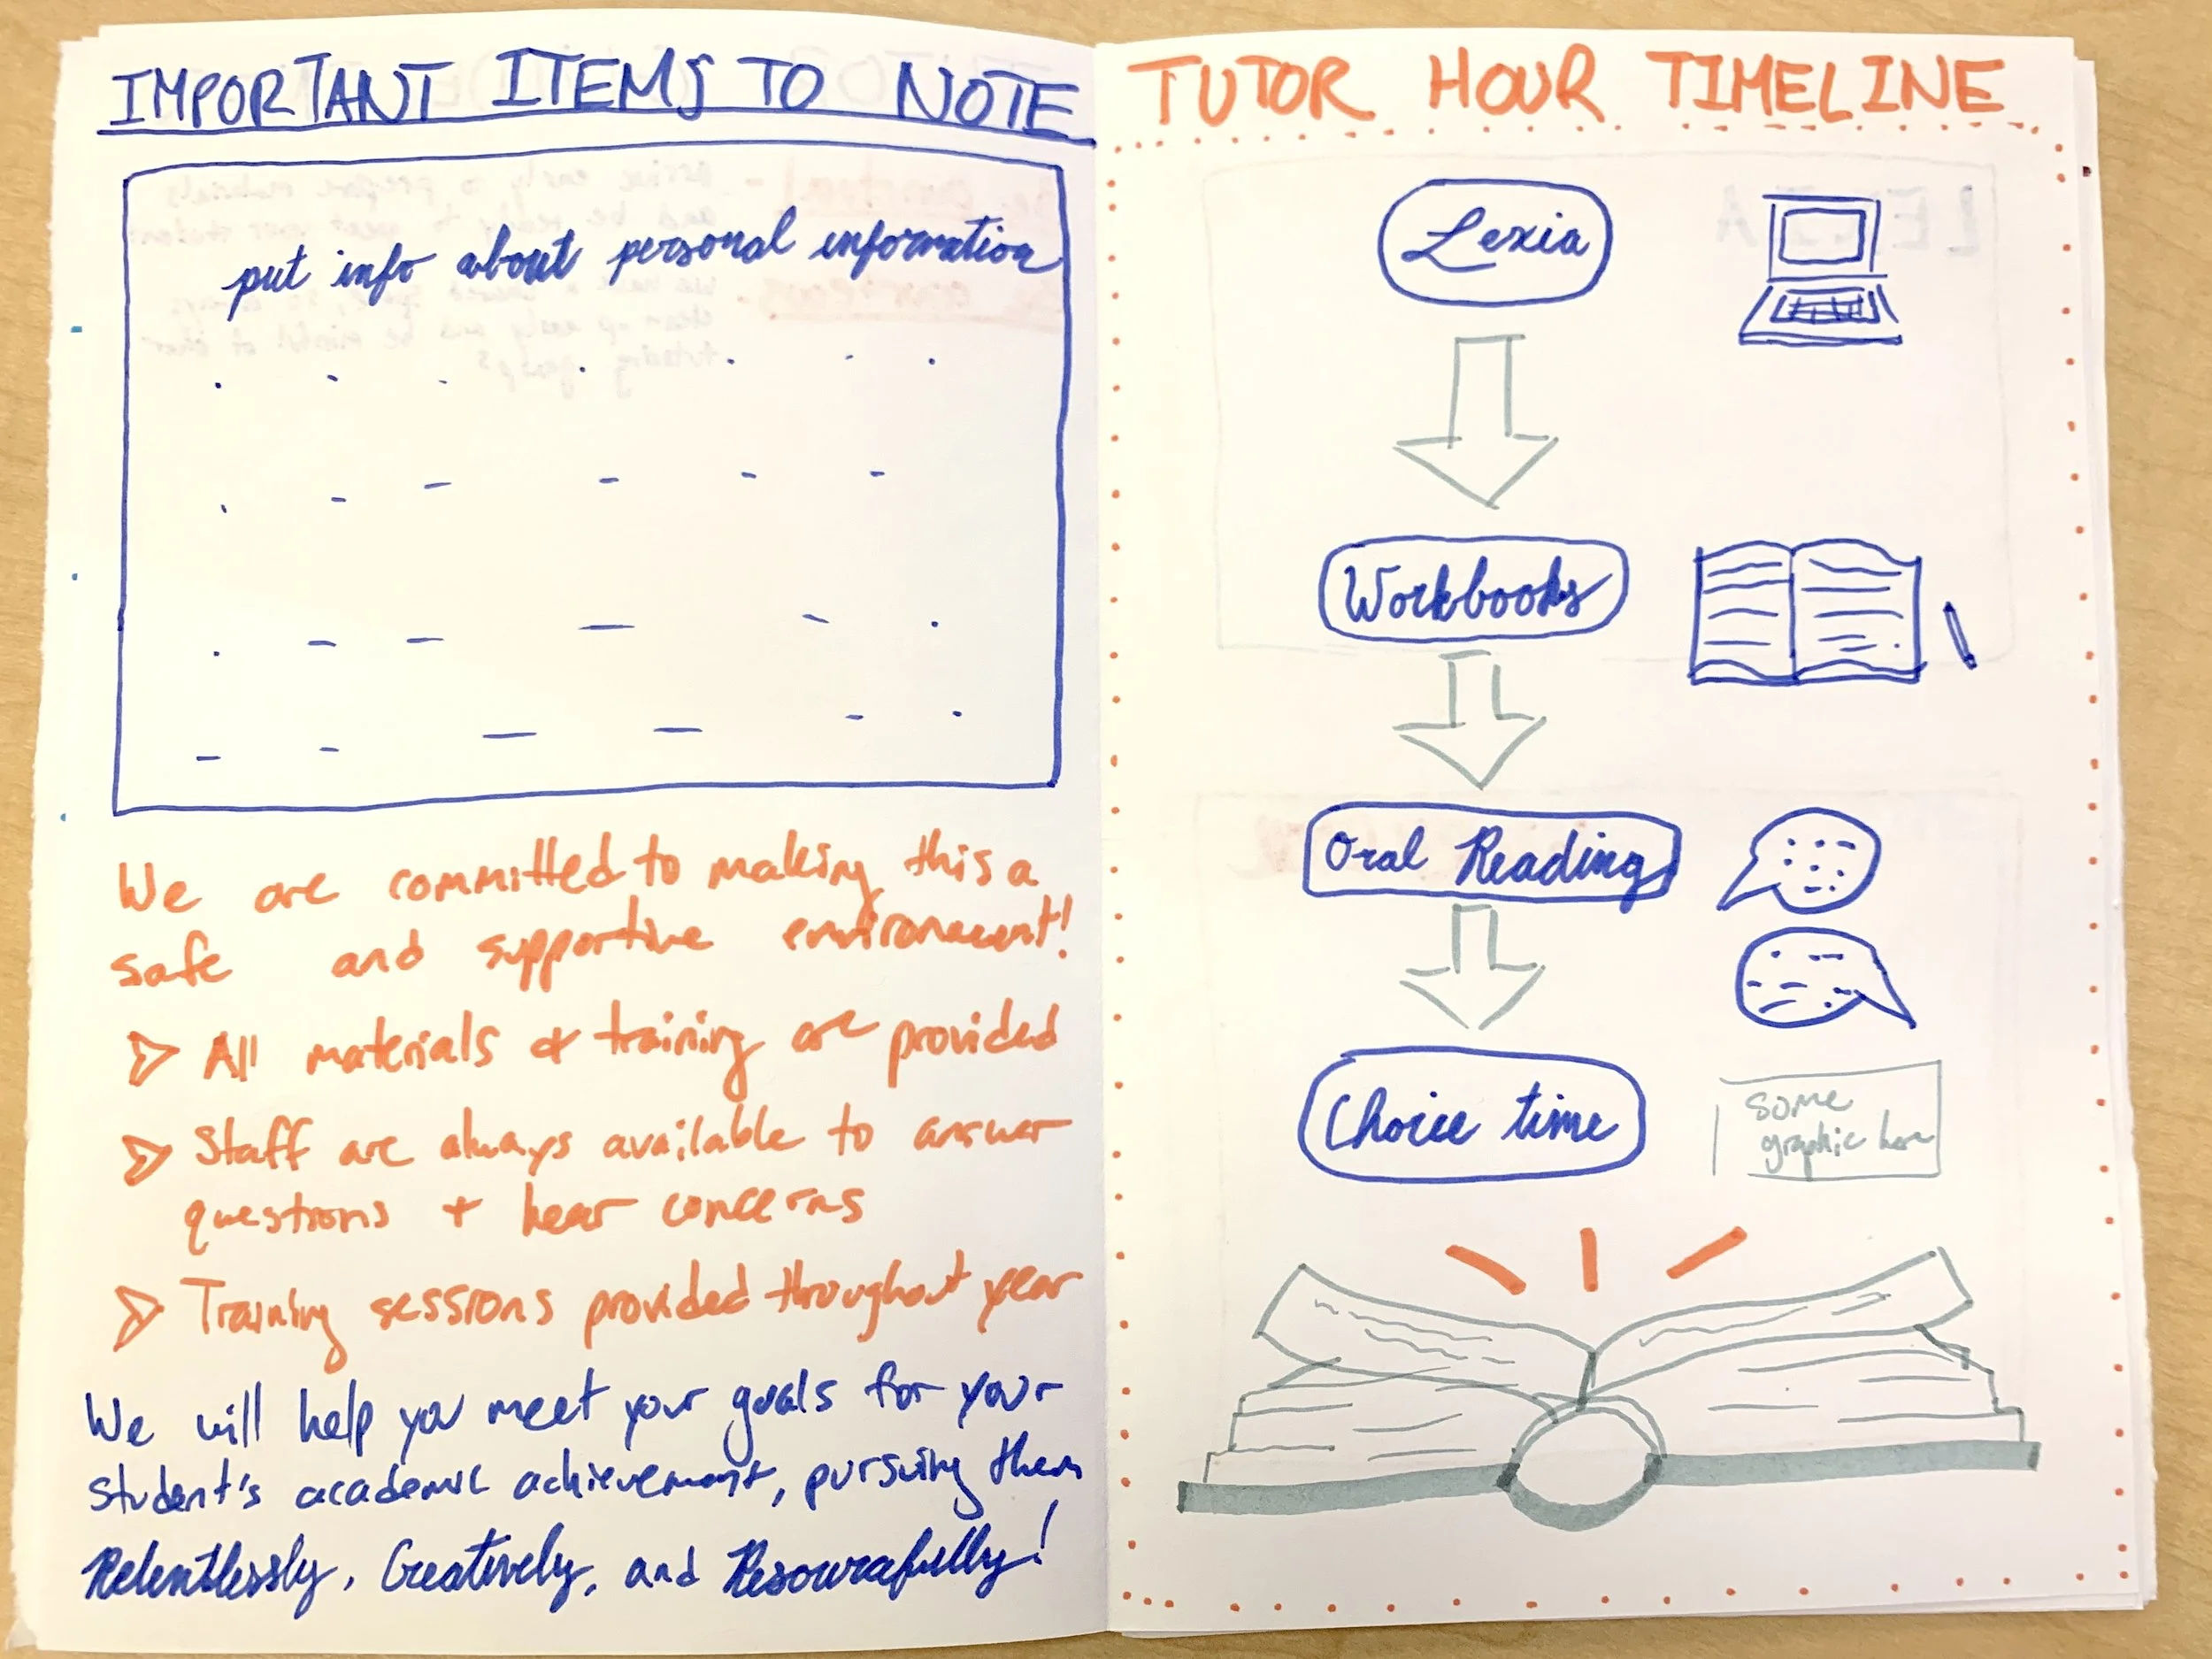 IMPORTANT ITEMS TO NOTE
put info about personal information
We are committed to making this a
safe and supportive environment!
All materials & training are provided
Staff are always available to answer
questions + hear concerns
Training sessions provided throughout year
We will help you meet your goals for your
student's academic achievement, pursuing them
Relentlessly, Creatively, and Resourcefully!
TUTOR HOUR TIMELINE
Lexia
Workbooks
Oral Reading
Choice time
some
graphic here